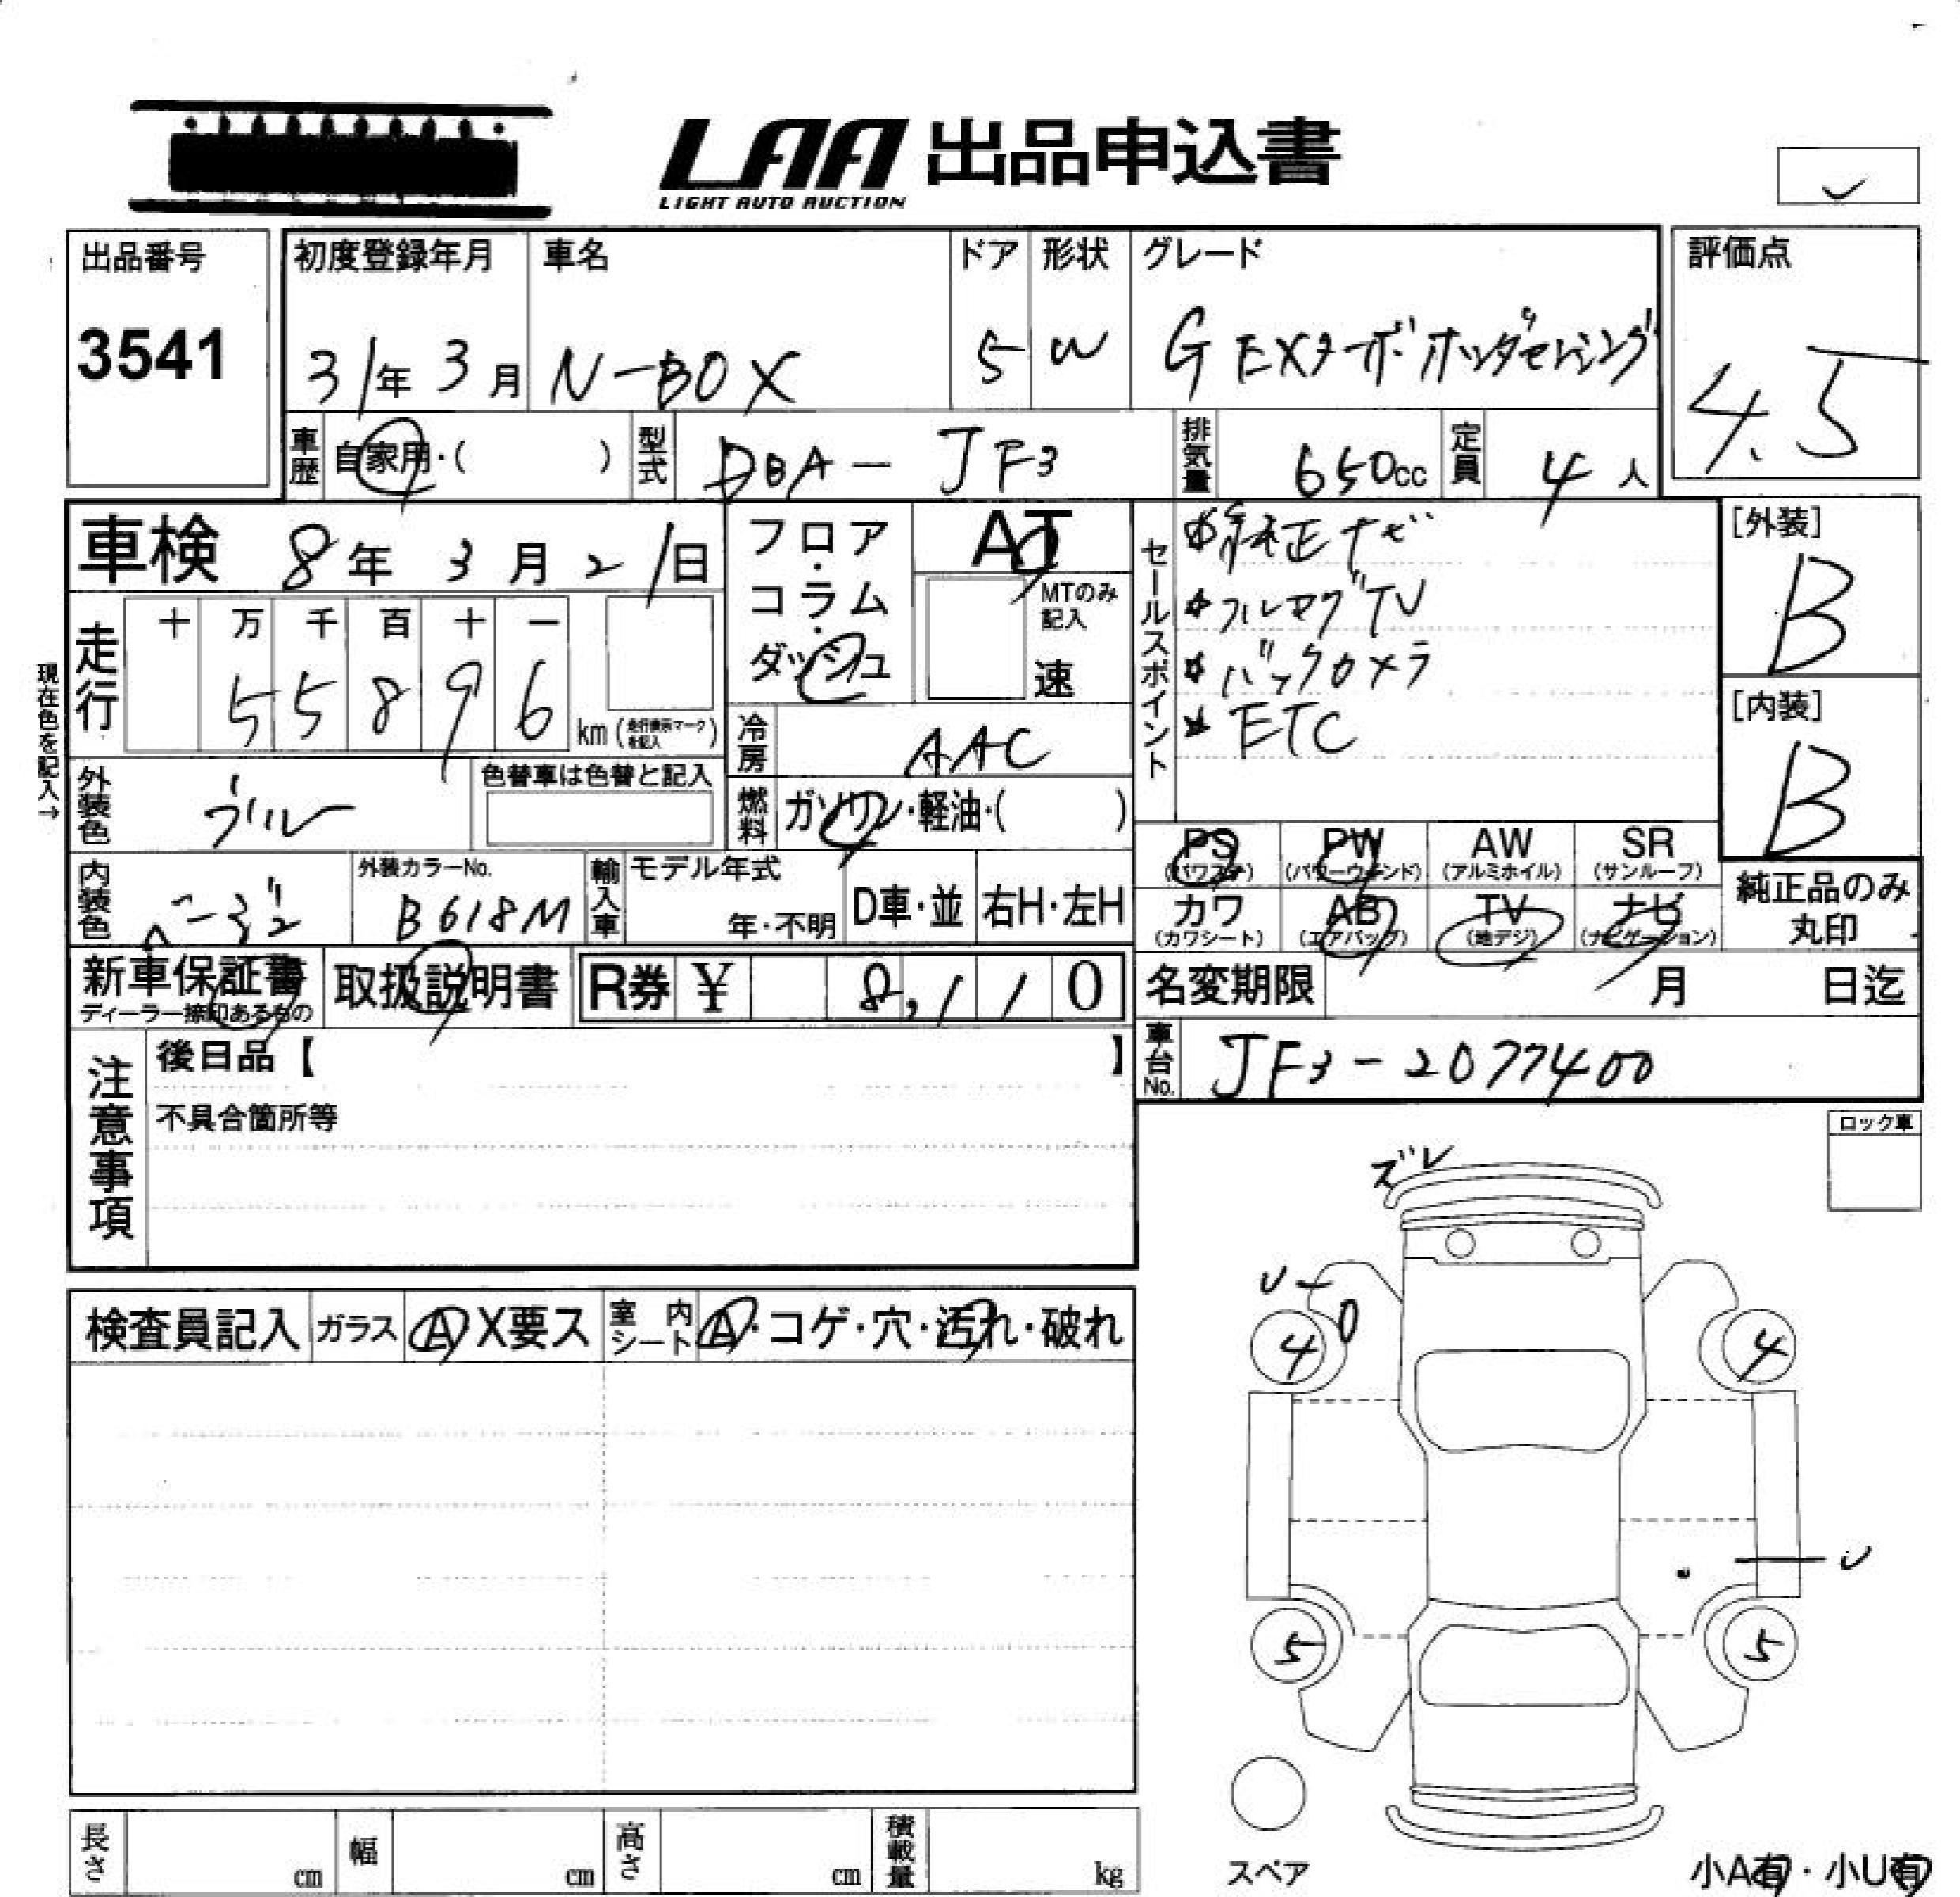 LAA 出品申込書
LIGHT AUTO AUCTION
出品番号
3541
初度登録年月
31年 3月
車名
N-BOX
ドア
5
形状
W
グレード
G EXターボホンダセンシング
評価点
4.5
車歴 自家用・( )
型式 DBA-JF3
排気量 650cc
定員 4人
車検 8年 3月 21日
フロア・コラム・ダッシュ
AT
MTのみ記入
速
セールスポイント
純正ナビ
フルセグTV
バックカメラ
ETC
[外装]
B
[内装]
B
現在色を記入→
走行 十 万 千 百 十 一
55896 km
(走行表示マークを記入)
冷房 AAC
外装色 ブルー
色替車は色替と記入
燃料 ガソリン・軽油・( )
PS (パワステ) PW (パワーウィンド) AW (アルミホイル) SR (サンルーフ)
カワ (カワシート) AB (エアバッグ) TV (地デジ) ナビ (ナビゲーション)
純正品のみ丸印
内装色
外装カラーNo.
B618M
輸入車 モデル年式
年・不明 D車・並 右H・左H
新車保証書
ディーラー捺印あるもの
取扱説明書
R券 ¥ 8,110
名変期限 月 日迄
車台No. JF3-2077400
注意事項
後日品【 】
不具合箇所等
ロック車
ズレ
U
4 4
U
5 5
検査員記入 ガラス A X要ス 室内シート A・コゲ・穴・汚れ・破れ
長さ cm 幅 cm 高さ cm 積載量 kg
スペア
小A有・小U有